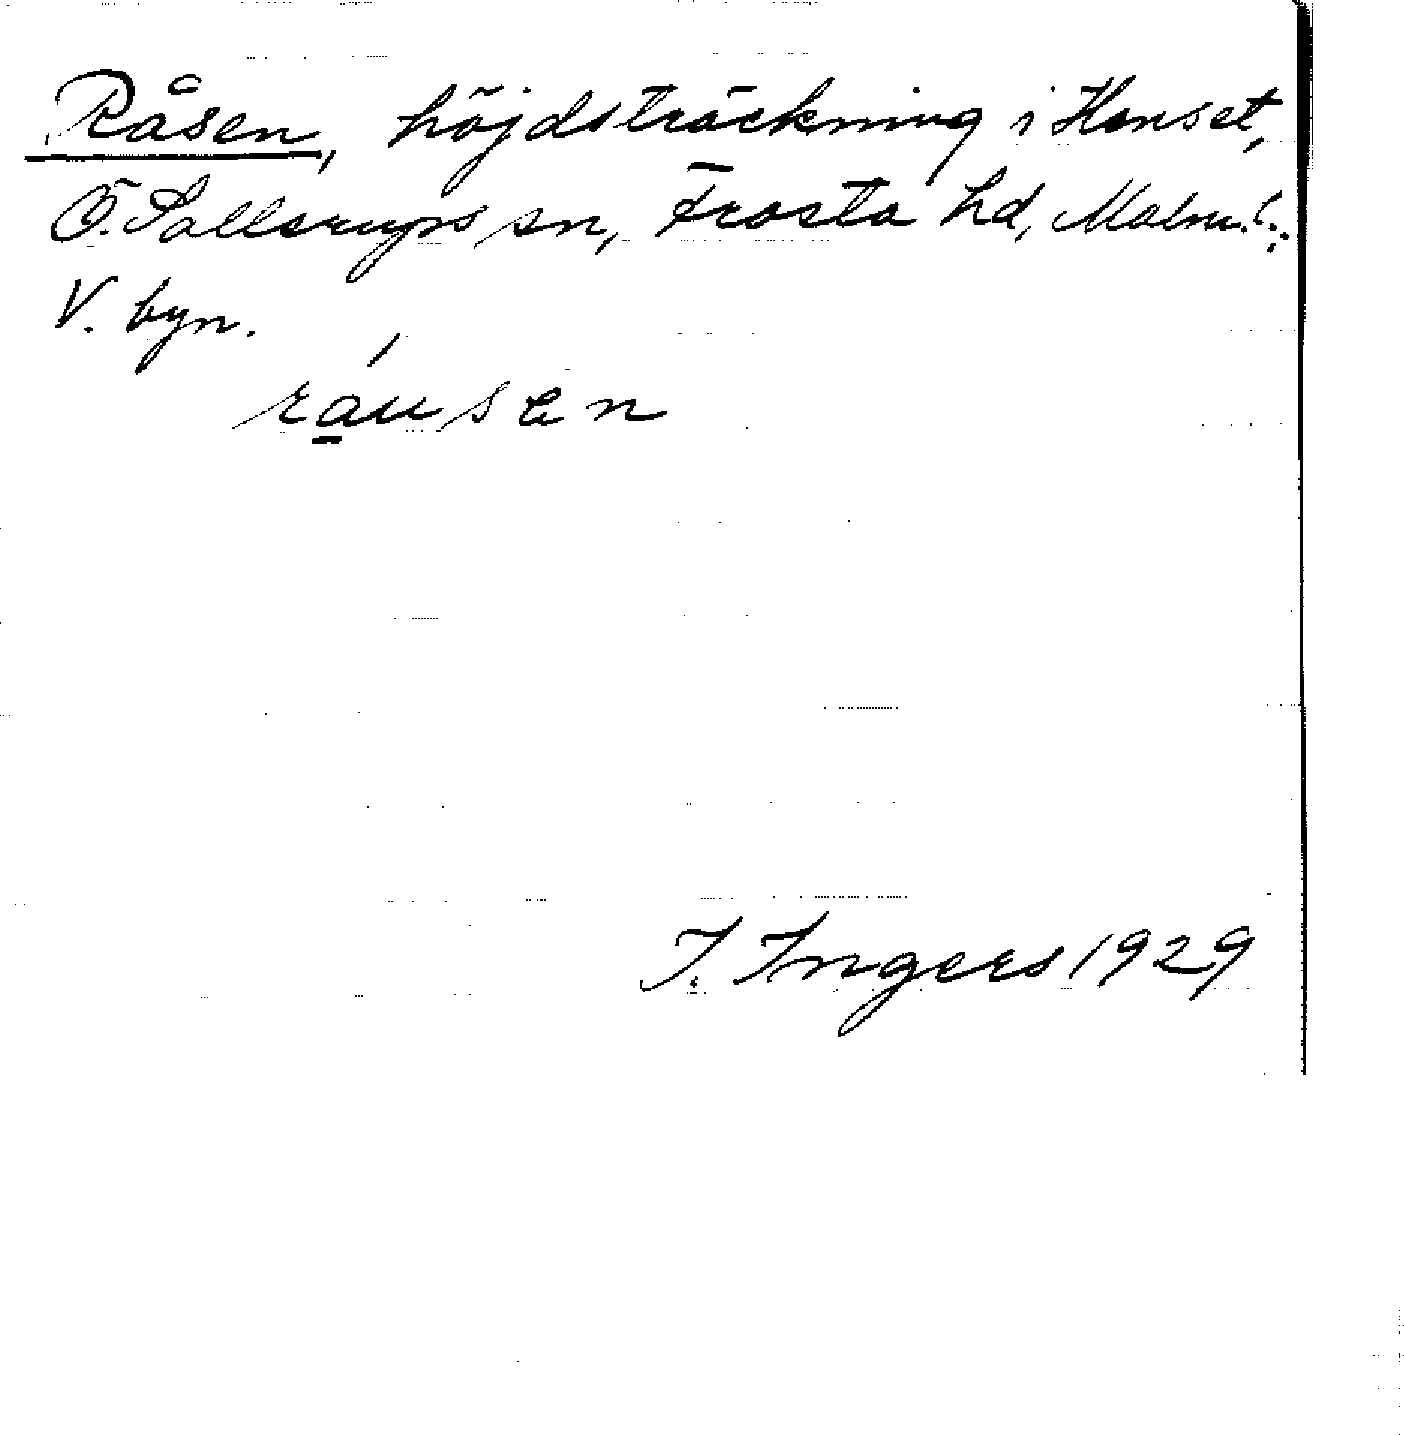 Råsen, höjdsträckning i Hanset,
Ö. Sallerups sn, Frosta hd, Malm. l.:
V. byn.
ráusen
I. Ingers 1929